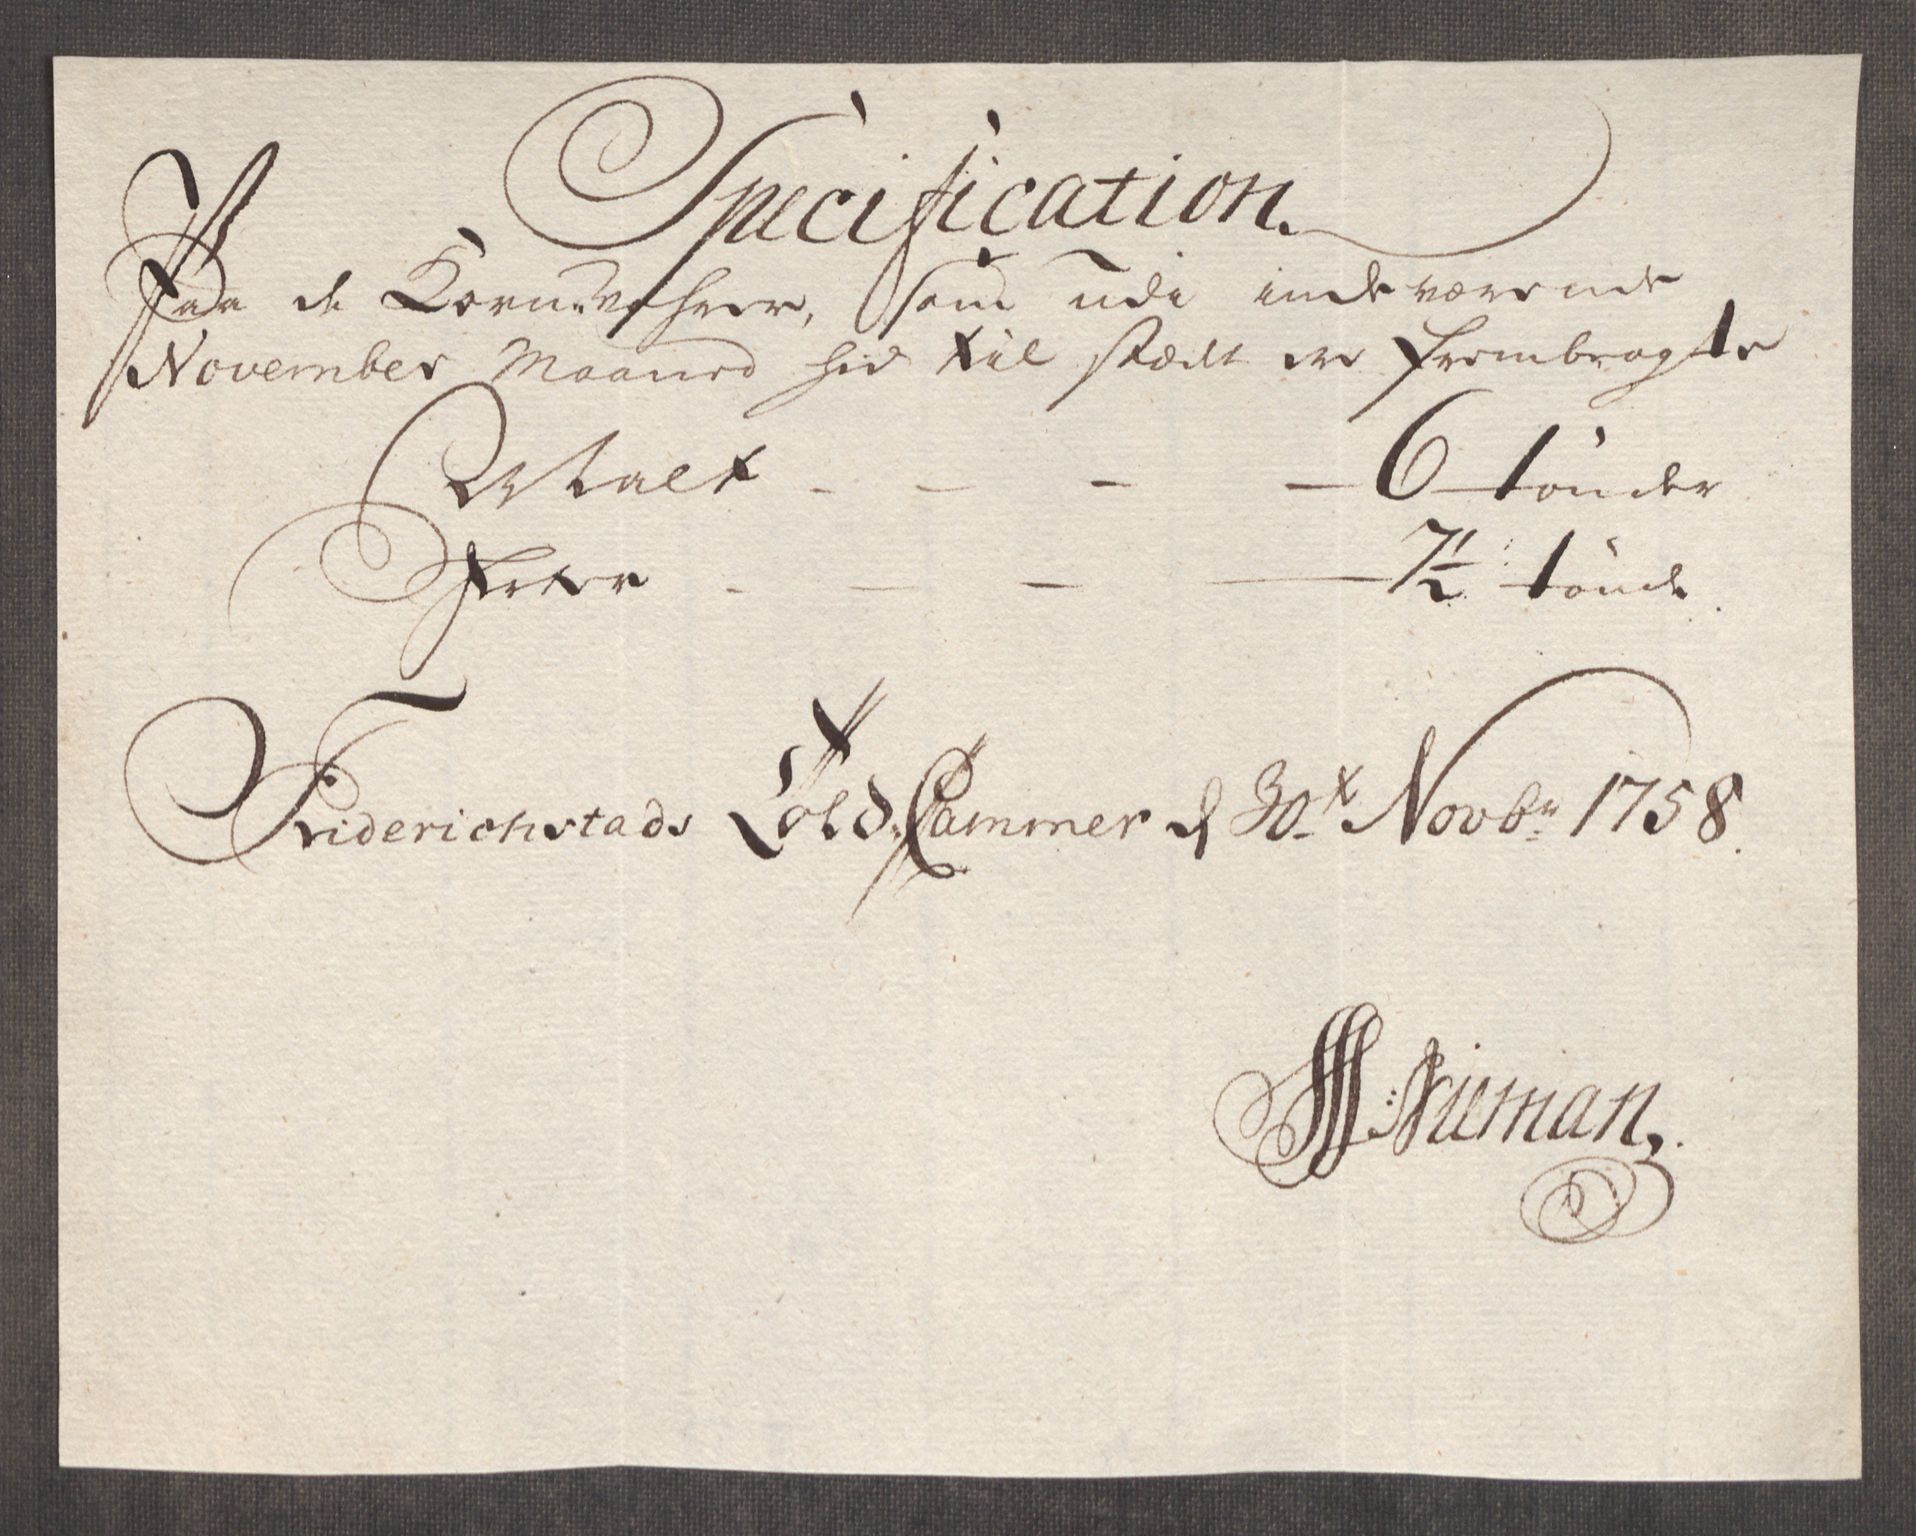 Specification.
Paa de Korn-Vahrer, som udi indeværende
November Maaned hid til stædet ere frembragte
Malt - - - - 6 tønder
Erter - - - - 7½ tønde.
Friderichstads Told-Cammer d 30t Novbr 1758.
Nieman.